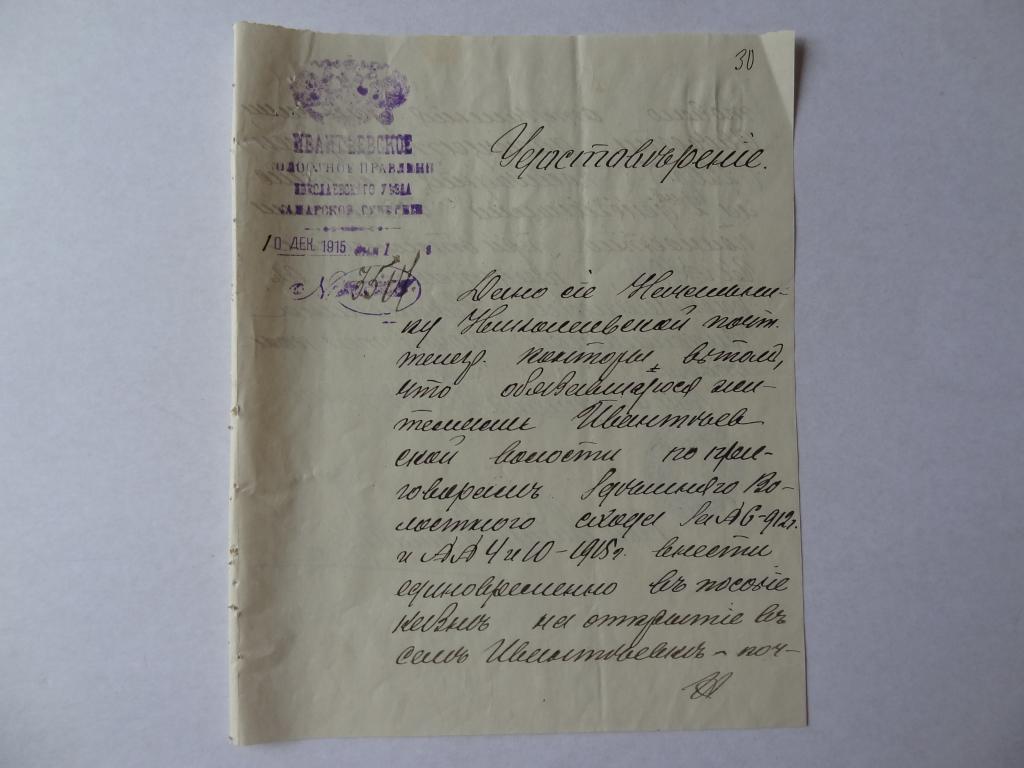 30
ИВАНТЕЕВСКОЕ
ВОЛОСТНОЕ ПРАВЛЕНІЕ
НИКОЛАЕВСКАГО УѢЗДА
САМАРСКОЙ ГУБЕРНІИ
10 ДЕК. 1915
№
Удостовѣреніе.
Дано сіе Начальни-
ку Николаевской почт.
телегр. конторы, в томъ,
что обязавшагося жи-
телями Ивантѣев
ской волости по при-
говорамъ здѣшняго Во-
лостного схода за № 6-912г.
и №№ 4 и 10-1915г. внести
единовременно въ пособіе
казнѣ на открытіе въ
селѣ Ивантѣевкѣ - поч-